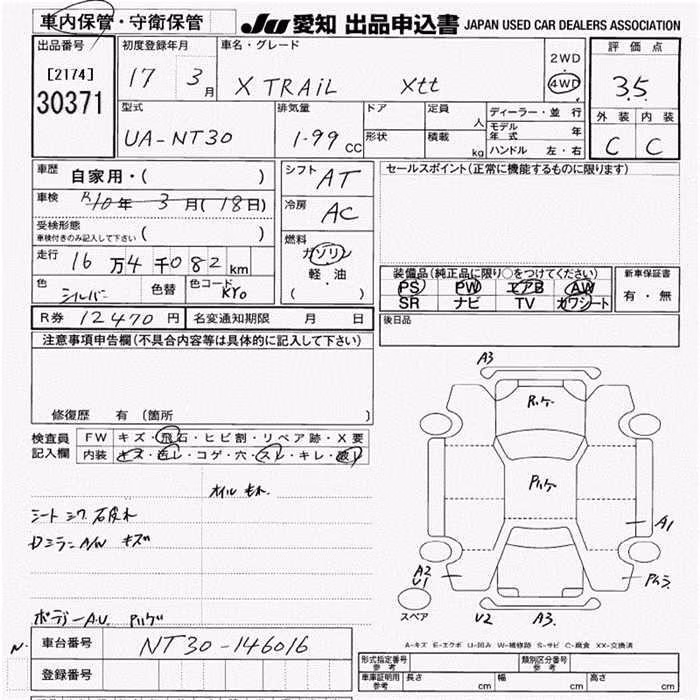 車内保管・守衛保管 JU 愛知 出品申込書 JAPAN USED CAR DEALERS ASSOCIATION
出品番号 初度登録年月 車名・グレード 2WD 評価点
[2174] 17 3月 X TRAIL Xtt ・ 4WD 3.5
30371 型式 排気量 ドア 定員 人 ディーラー・並行 外装 内装
UA-NT30 1.99 CC 形状 積載 kg モデル年式 年 C C
ハンドル 左・右
車歴 自家用・( ) シフト AT セールスポイント(正常に機能するものに限ります)
車検 R10年 3月(18日) 冷房 AC
受検形態 車検付きのみ記入して下さい ( )
走行 16万4千082km 燃料 ガソリン 軽油 ( )
装備品(純正品に限り○をつけてください) 新車保証書
色 シルバー 色替 色コード KY0 PS PW エアB AW 有・無
SR ナビ TV カワシート
R券 12470円 名変通知期限 月 日 後日品
注意事項申告欄(不具合内容等は具体的に記入して下さい)
修復歴 有 (箇所 )
検査員記入欄 FW キズ・飛石・ヒビ割・リペア跡・X要
内装 キズ・汚レ・コゲ・穴・スレ・キレ・破レ
オイルもれ
シート シワ
ドミラーA/W キズ
ボデーA.U.
車台番号 NT30-146016
登録番号
A3
A1
A2
U1
スペア
U2 A3.
A-キズ E-エクボ U-凹み W-補修跡 S-サビ C-腐食 XX-交換済
形式指定番号 参考 類別区分番号 参考
車庫証明用 参考 長さ cm 幅 cm 高さ cm